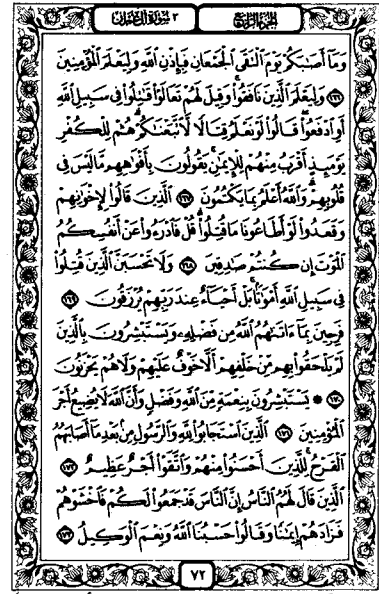 الجزء الرابع
٣ سورة آل عمران
وَمَآ أَصَٰبَكُمْ يَوْمَ ٱلْتَقَى ٱلْجَمْعَانِ فَبِإِذْنِ ٱللَّهِ وَلِيَعْلَمَ ٱلْمُؤْمِنِينَ
١٦٦ وَلِيَعْلَمَ ٱلَّذِينَ نَافَقُوا۟ وَقِيلَ لَهُمْ تَعَالَوْا۟ قَٰتِلُوا۟ فِى سَبِيلِ ٱللَّهِ
أَوِ ٱدْفَعُوا۟ قَالُوا۟ لَوْ نَعْلَمُ قِتَالًا لَّٱتَّبَعْنَٰكُمْ هُمْ لِلْكُفْرِ
يَوْمَئِذٍ أَقْرَبُ مِنْهُمْ لِلْإِيمَٰنِ يَقُولُونَ بِأَفْوَٰهِهِم مَّا لَيْسَ فِى
قُلُوبِهِمْ وَٱللَّهُ أَعْلَمُ بِمَا يَكْتُمُونَ ١٦٧ ٱلَّذِينَ قَالُوا۟ لِإِخْوَٰنِهِمْ
وَقَعَدُوا۟ لَوْ أَطَاعُونَا مَا قُتِلُوا۟ قُلْ فَٱدْرَءُوا۟ عَنْ أَنفُسِكُمُ
ٱلْمَوْتَ إِن كُنتُمْ صَٰدِقِينَ ١٦٨ وَلَا تَحْسَبَنَّ ٱلَّذِينَ قُتِلُوا۟
فِى سَبِيلِ ٱللَّهِ أَمْوَٰتًۢا بَلْ أَحْيَآءٌ عِندَ رَبِّهِمْ يُرْزَقُونَ ١٦٩
فَرِحِينَ بِمَآ ءَاتَىٰهُمُ ٱللَّهُ مِن فَضْلِهِۦ وَيَسْتَبْشِرُونَ بِٱلَّذِينَ
لَمْ يَلْحَقُوا۟ بِهِم مِّنْ خَلْفِهِمْ أَلَّا خَوْفٌ عَلَيْهِمْ وَلَا هُمْ يَحْزَنُونَ
١٧٠ ۞ يَسْتَبْشِرُونَ بِنِعْمَةٍ مِّنَ ٱللَّهِ وَفَضْلٍ وَأَنَّ ٱللَّهَ لَا يُضِيعُ أَجْرَ
ٱلْمُؤْمِنِينَ ١٧١ ٱلَّذِينَ ٱسْتَجَابُوا۟ لِلَّهِ وَٱلرَّسُولِ مِنۢ بَعْدِ مَآ أَصَابَهُمُ
ٱلْقَرْحُ لِلَّذِينَ أَحْسَنُوا۟ مِنْهُمْ وَٱتَّقَوْا۟ أَجْرٌ عَظِيمٌ ١٧٢
ٱلَّذِينَ قَالَ لَهُمُ ٱلنَّاسُ إِنَّ ٱلنَّاسَ قَدْ جَمَعُوا۟ لَكُمْ فَٱخْشَوْهُمْ
فَزَادَهُمْ إِيمَٰنًا وَقَالُوا۟ حَسْبُنَا ٱللَّهُ وَنِعْمَ ٱلْوَكِيلُ ١٧٣
٧٢